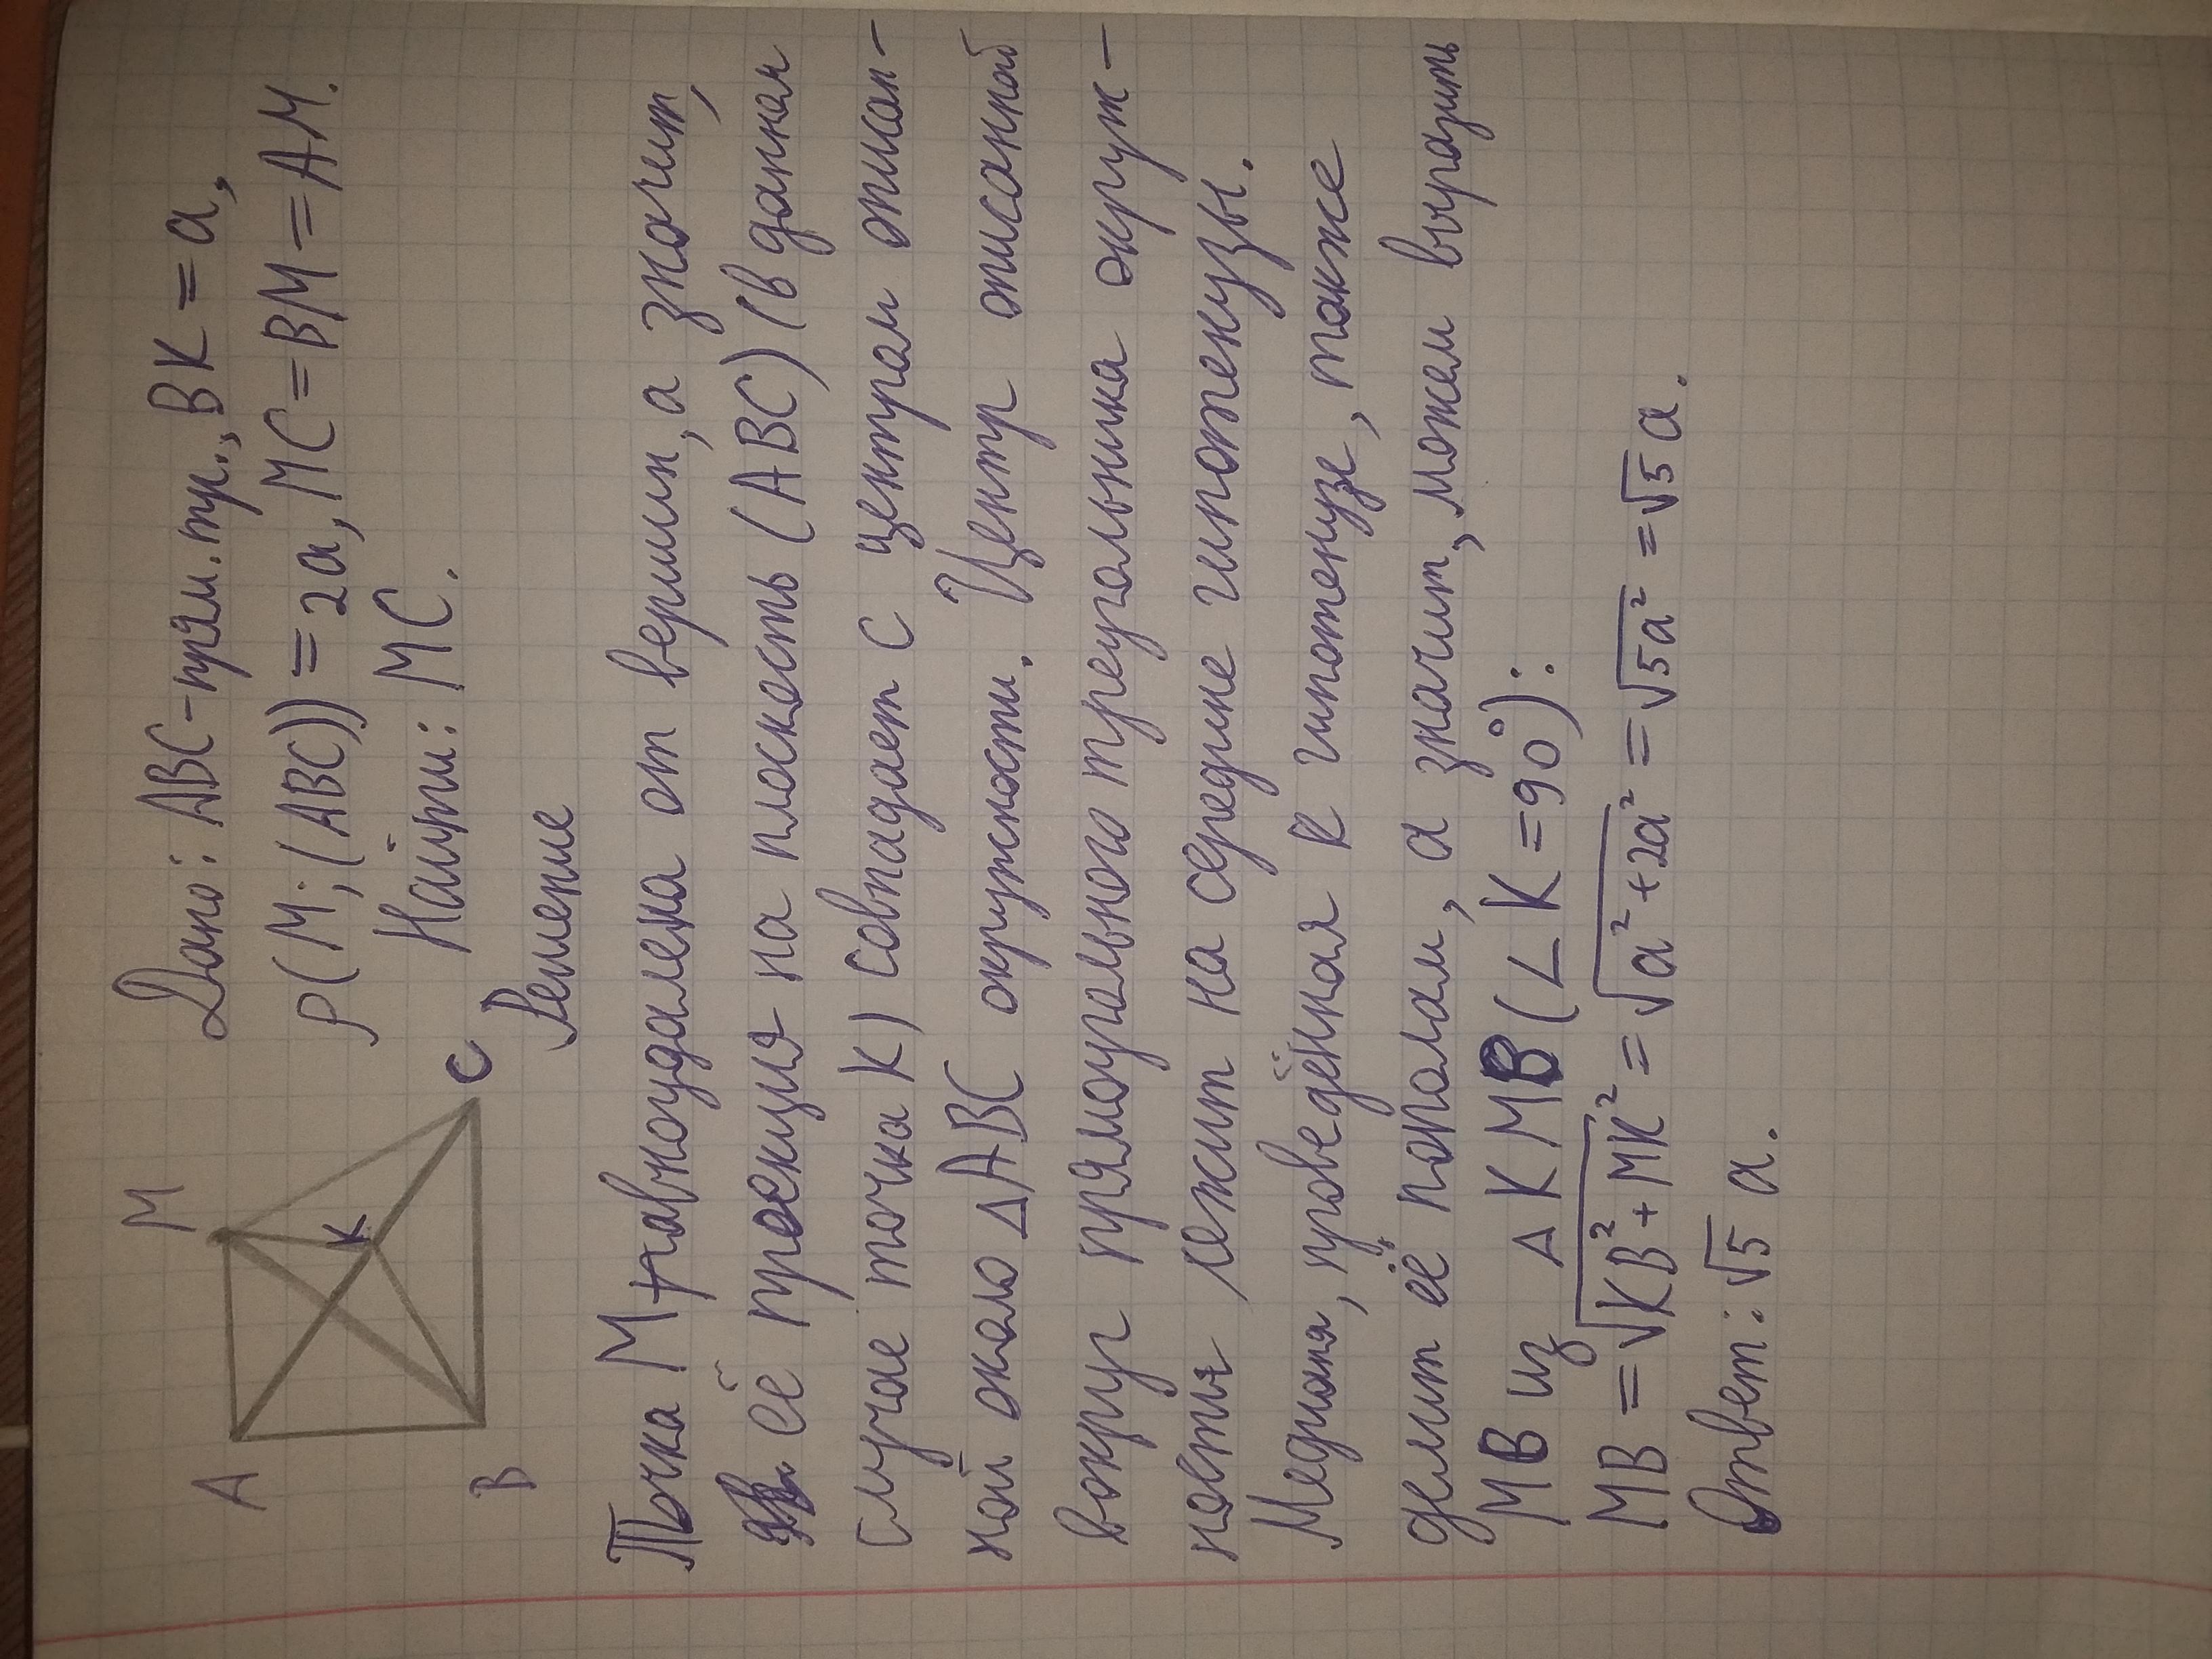 M
A
K
B
C
Дано: ABC-прям.тр., BK = a,
ρ(M;(ABC)) = 2a, MC = BM = AM.
Найти: MC.
Решение
Точка M равноудалена от вершин, а значит,
её проекция на плоскость (ABC) (в данная
случае точка K) совпадает с центром описан-
ной около ΔABC окружности. Центр описанной
вокруг прямоугольного треугольника окруж-
ности лежит на середине гипотенузы.
Медиана, проведённая к гипотенузе, также
делит её пополам, а значит, можем выразить
MB из ΔKMB (∠K = 90°):
MB = √KB² + MK² = √a² + 2a² = √5a² = √5 a.
Ответ: √5 a.